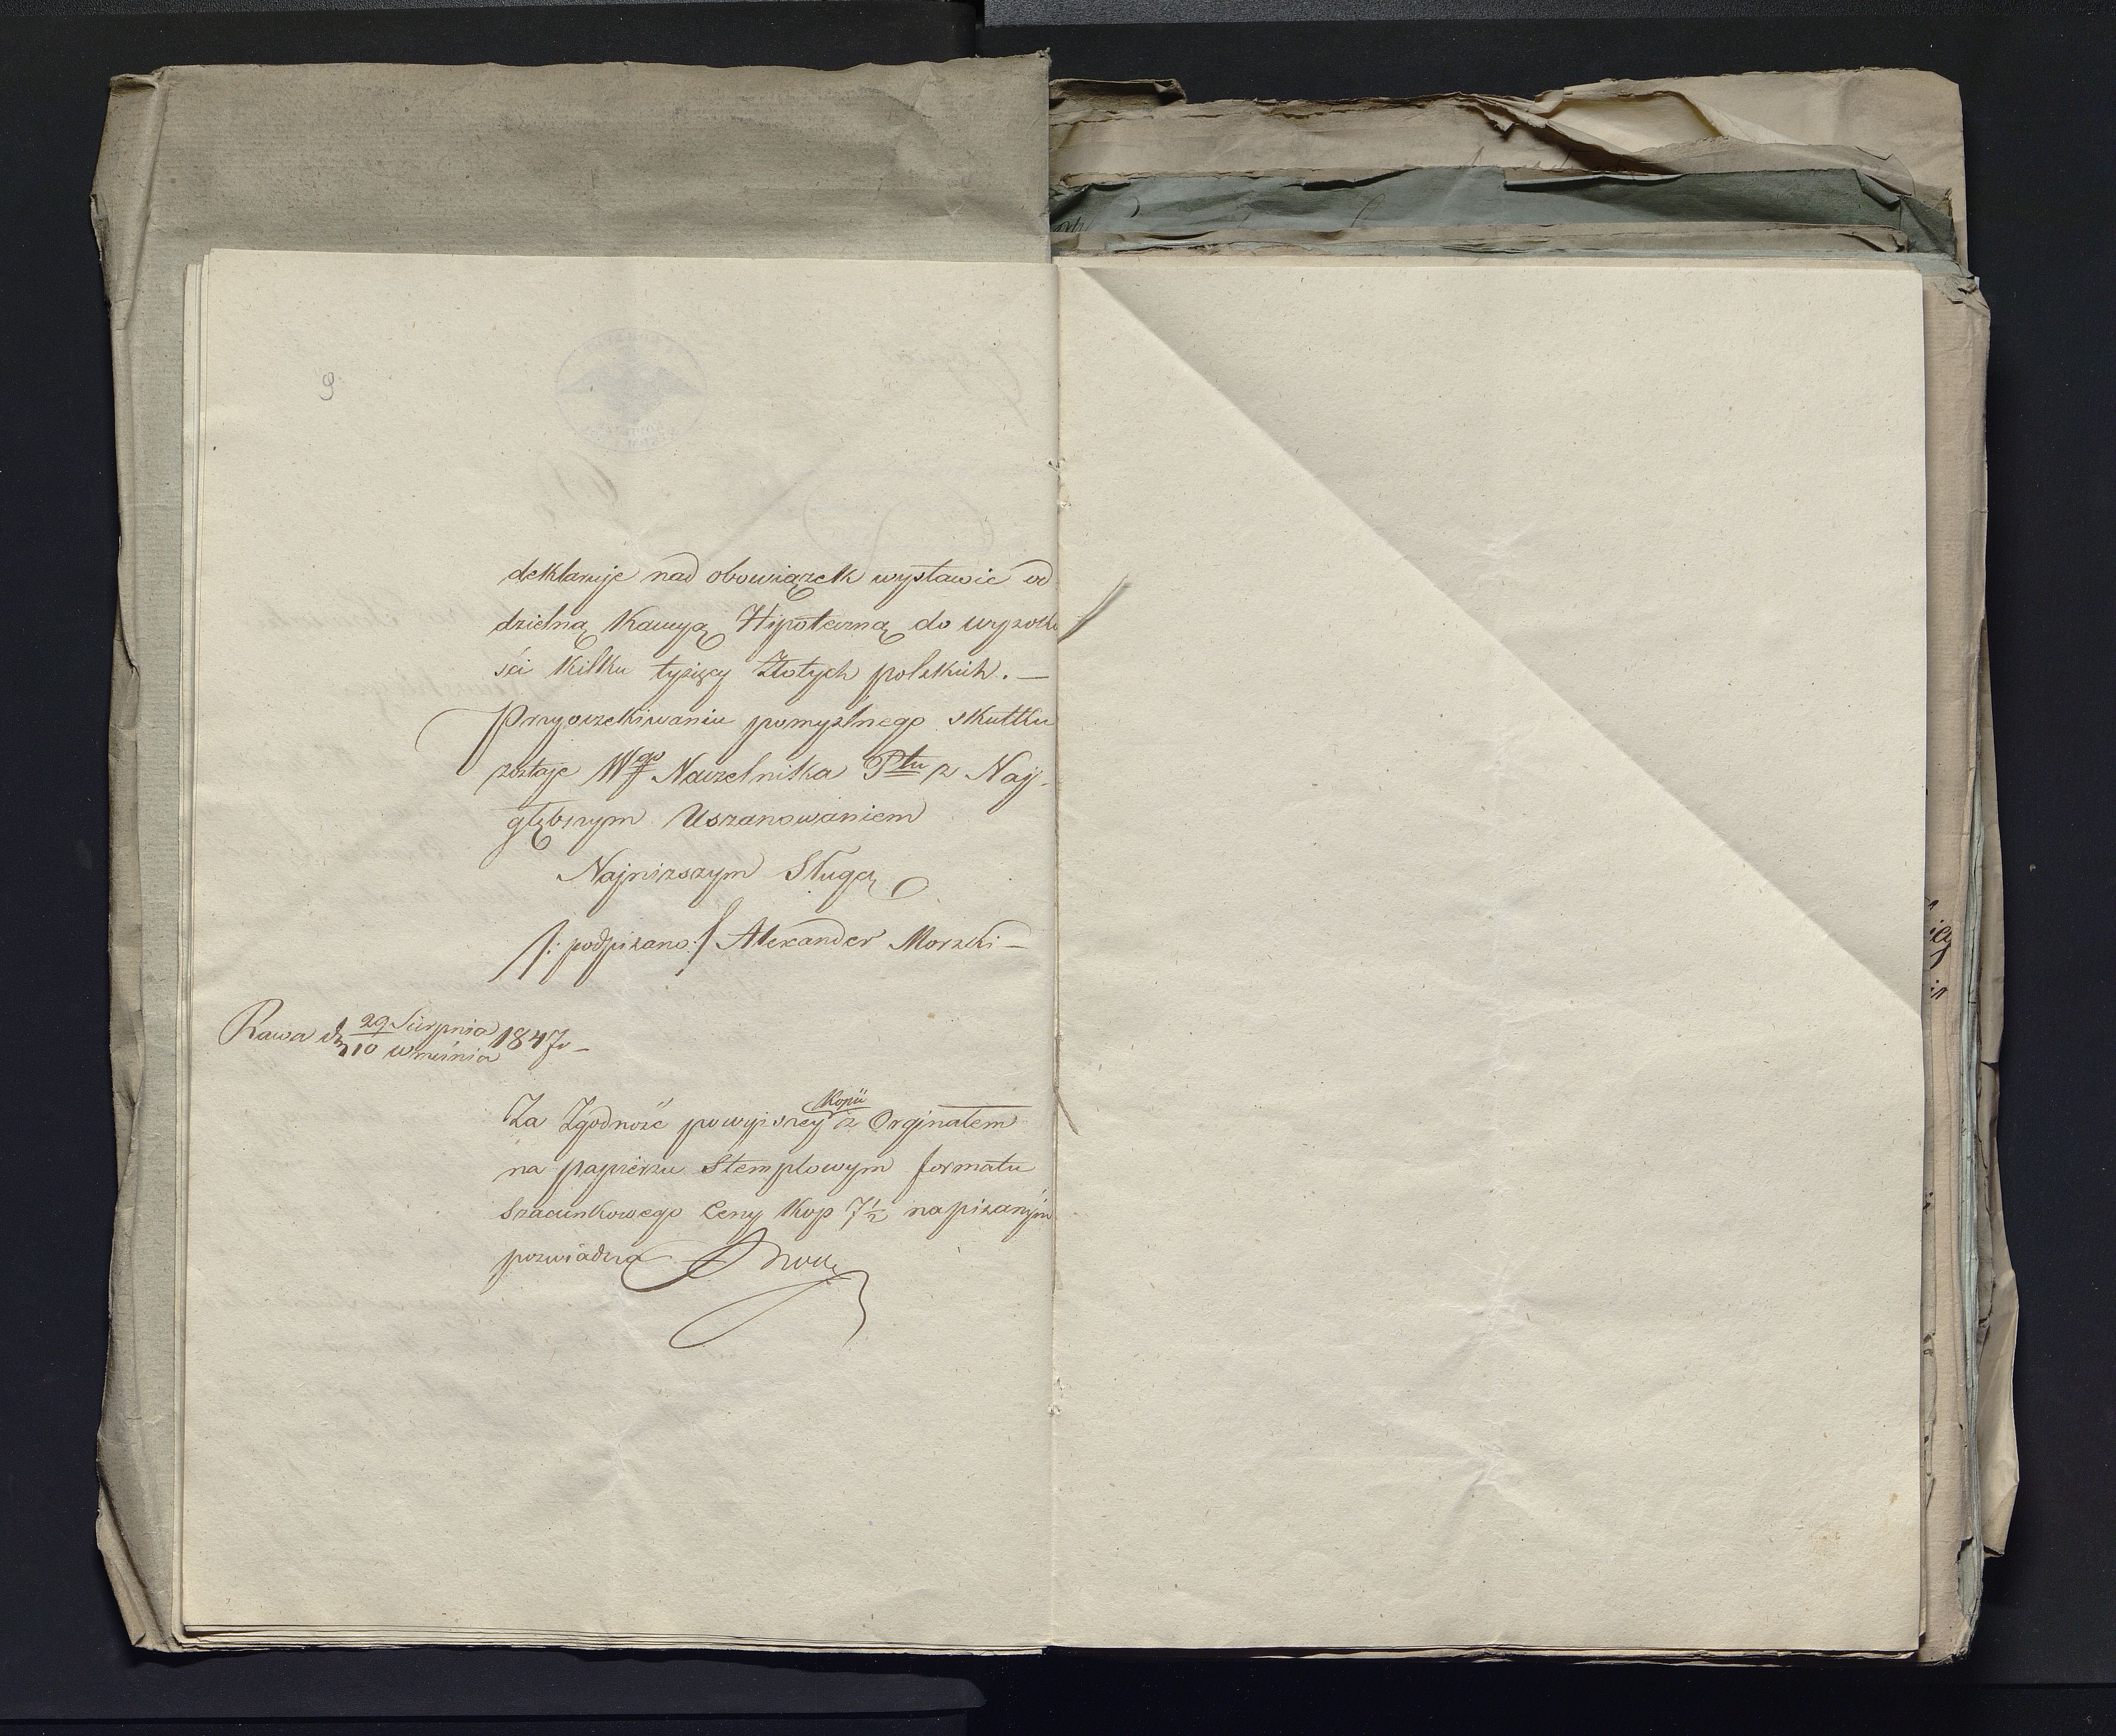 9
deklaruje nad obowiązek wystawić od
dzielną Kaucyą Hipoteczną do wysoko
ści kilku tysięcy Złotych polskich. —
Przy oczekiwaniu pomyslnego skutku
zostaje Wgo Naczelnika Ptu z Naj-
głębszym Uszanowaniem
Najnizszym Sługą
/: podpisano :/ Alexander Morski —
Rawa dn 29 Sierpnia / 10 Września 1847 r —
Kopii
Za Zgodność powyższey z Orginałem
na papierze Stemplowym formatu
Szacunkowego Ceny Kop 7½ napisanym
poswiadcza